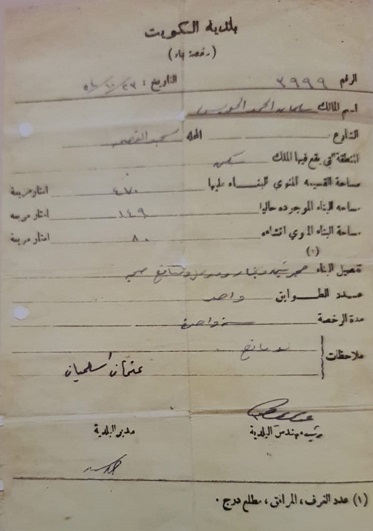 بلدية الكويت
(رخصة بناء)
الرقم ٣٩٩٩ التاريخ
اسم المالك
الشارع المحلة
المنطقة التي يقع فيها الملك سكن
مساحة القسيمة المنوي البناء عليها ٤٧٠ امتار مربعة
مساحة البناء الموجوده حاليا ١٤٩ امتار مربعة
مساحة البناء المنوي انشاءه ٨٠ امتار مربعة
(١)
تفصيل البناء
عدد الطوابق واحد
مدة الرخصة سنة واحدة
ملاحظات لا مانع
عثمان السلمان
رئيس مهندسي البلدية مدير البلدية
(١) عدد الغرف، المرافق، مطلع درج .